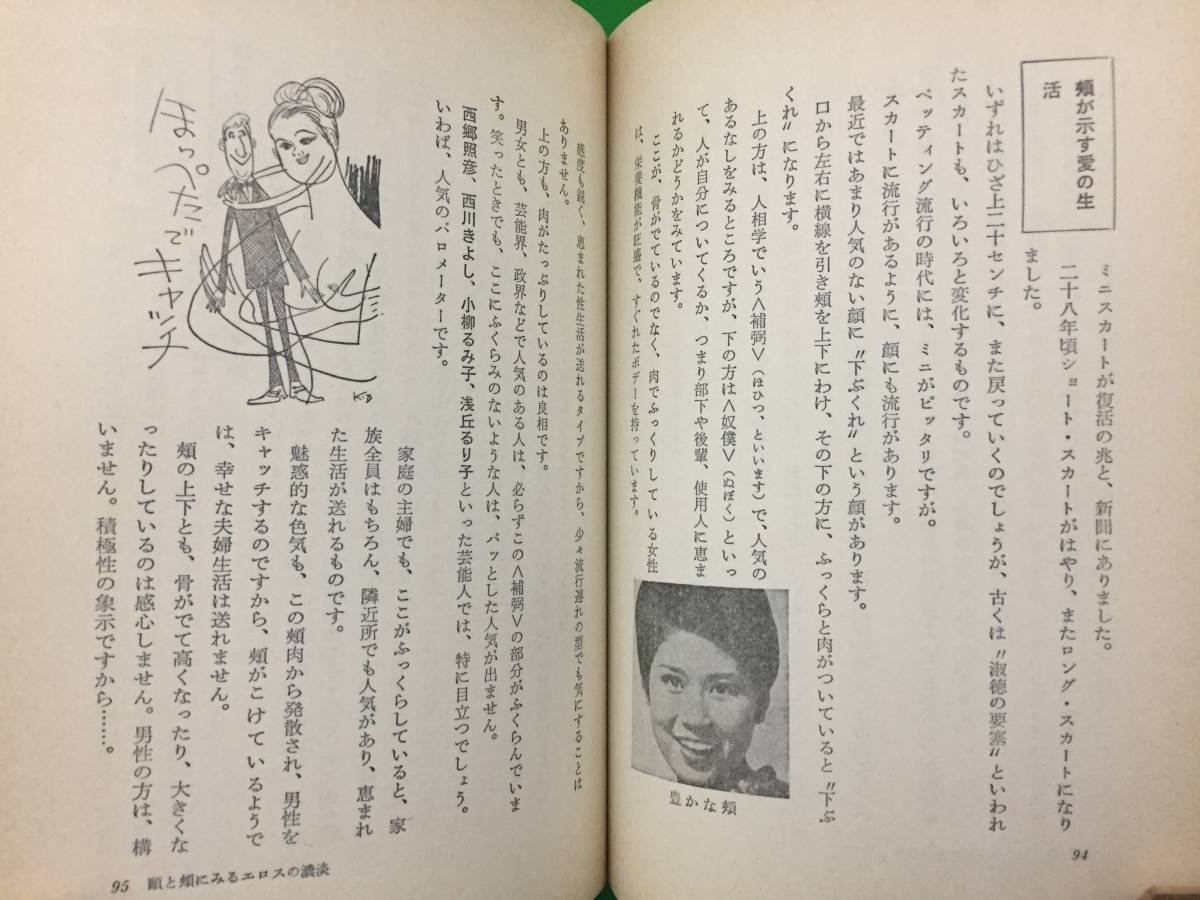 頰が示す愛の生
活
ミニスカートが復活の兆と、新聞にありました。
二十八年頃ショート・スカートがはやり、またロング・スカートになり
ました。
いずれはひざ上二十センチに、また戻っていくのでしょうが、古くは〝淑徳の要塞〟といわれ
たスカートも、いろいろと変化するものです。
ペッティング流行の時代には、ミニがピッタリですが。
スカートに流行があるように、顔にも流行があります。
最近ではあまり人気のない顔に〝下ぶくれ〟という顔があります。
口から左右に横線を引き頰を上下にわけ、その下の方に、ふっくらと肉がついていると〝下ぶ
くれ〟になります。
上の方は、人相学でいう<補弼>(ほひつ、といいます)で、人気の
あるなしをみるところですが、下の方は<奴僕>(ぬぼく)といっ
て、人が自分についてくるか、つまり部下や後輩、使用人に恵ま
れるかどうかをみています。
ここが、骨がでているのでなく、肉でふっくりしている女性
は、栄養機能が旺盛で、すぐれたボデーを持っています。
豊かな頰
94
感度も鋭く、恵まれた性生活が送れるタイプですから、少々流行遅れの型でも気にすることは
ありません。
上の方も、肉がたっぷりしているのは良相です。
男女とも、芸能界、政界などで人気のある人は、必らずこの<補弼>の部分がふくらんでいま
す。笑ったときでも、ここにふくらみのないような人は、パッとした人気が出ません。
西郷照彦、西川きよし、小柳るみ子、浅丘るり子といった芸能人では、特に目立つでしょう。
いわば、人気のバロメーターです。
ほっぺたで
キャッチ
KD
家庭の主婦でも、ここがふっくらしていると、家
族全員はもちろん、隣近所でも人気があり、恵まれ
た生活が送れるものです。
魅惑的な色気も、この頰肉から発散され、男性を
キャッチするのですから、頰がこけているようで
は、幸せな夫婦生活は送れません。
頰の上下とも、骨がでて高くなったり、大きくな
ったりしているのは感心しません。男性の方は、構
いません。積極性の象示ですから……。
95 頤と頰にみるエロスの濃淡